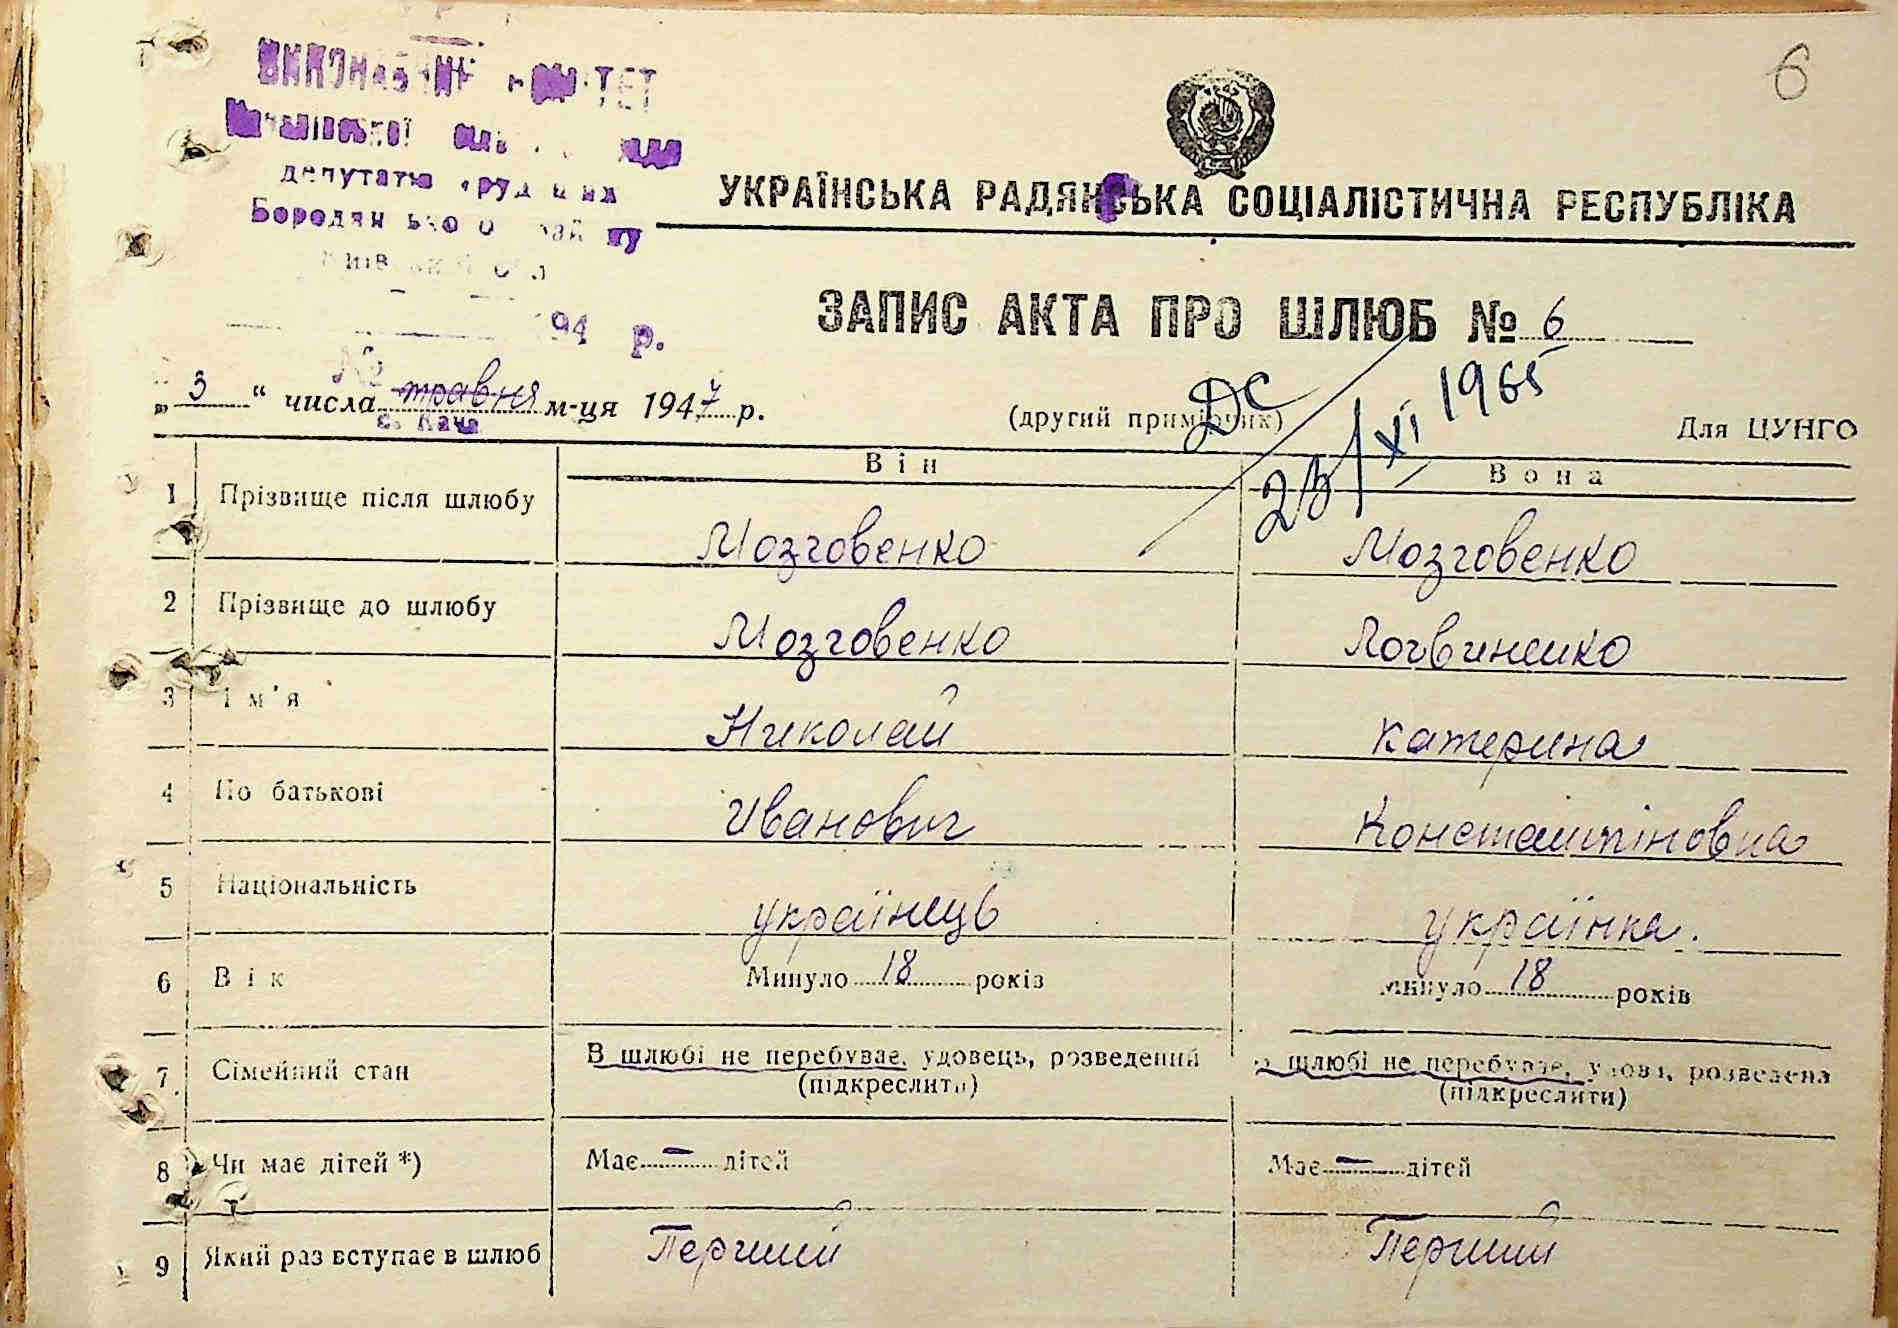 6
ВИКОНАВЧИЙ КОМІТЕТ
депутатів трудящих
Бородянського району
УКРАЇНСЬКА РАДЯНСЬКА СОЦІАЛІСТИЧНА РЕСПУБЛІКА
194 р.
ЗАПИС АКТА ПРО ШЛЮБ № 6
№
„ 3 “ числа травня м-ця 1947 р. (другий примірник) Для ЦУНГО
ДС 23/XI 1965
Він Вона
1 Прізвище після шлюбу Мозговенко Мозговенко
2 Прізвище до шлюбу Мозговенко Логвиненко
3 Ім'я Николай Катерина
4 По батькові Иванович Константіновна
5 Національність українець українка.
6 Вік Минуло 18 років Минуло 18 років
7 Сімейний стан В шлюбі не перебуває, удовець, розведений В шлюбі не перебуває, удова, розведена
(підкреслити) (підкреслити)
8 Чи має дітей *) Має — дітей Має — дітей
9 Який раз вступає в шлюб Перший Перший